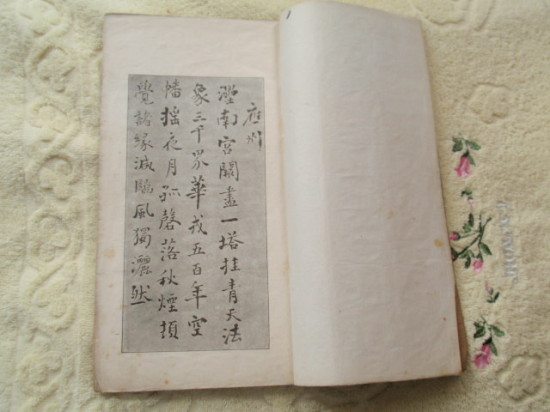 應州
灅南宮闕盡一塔挂青天法
象三千界華戎五百年空
幡摇夜月孤磬落秋煙頓
覺諸緣減臨風獨灑然